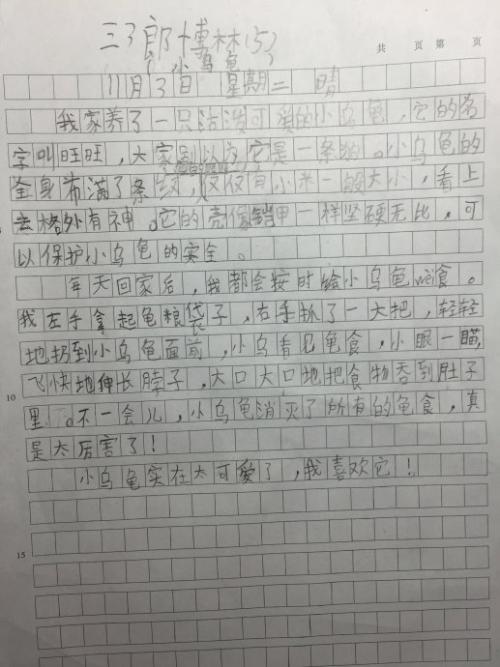 三3郎博林(5)
(小乌龟)
共 页 第 页
11月3日 星期二 晴
我家养了一只活泼可爱的小乌龟,它的名
字叫旺旺,大家别以为它是一条狗。小乌龟的
全身布满了条纹,仅仅有小米一般大小,看上
去格外有神。它的壳像铠甲一样坚硬无比,可
以保护小乌龟的安全。
每天回家后,我都会按时给小乌龟wèi食。
我左手拿起龟粮袋子,右手抓了一大把,轻轻
地扔到小乌龟面前,小乌看见龟食,小眼一瞄,
飞快地伸长脖子,大口大口地把食物吞到肚子
10
里。不一会儿,小乌龟消灭了所有的龟食,真
是太厉害了!
小乌龟实在太可爱了,我喜欢它!
15